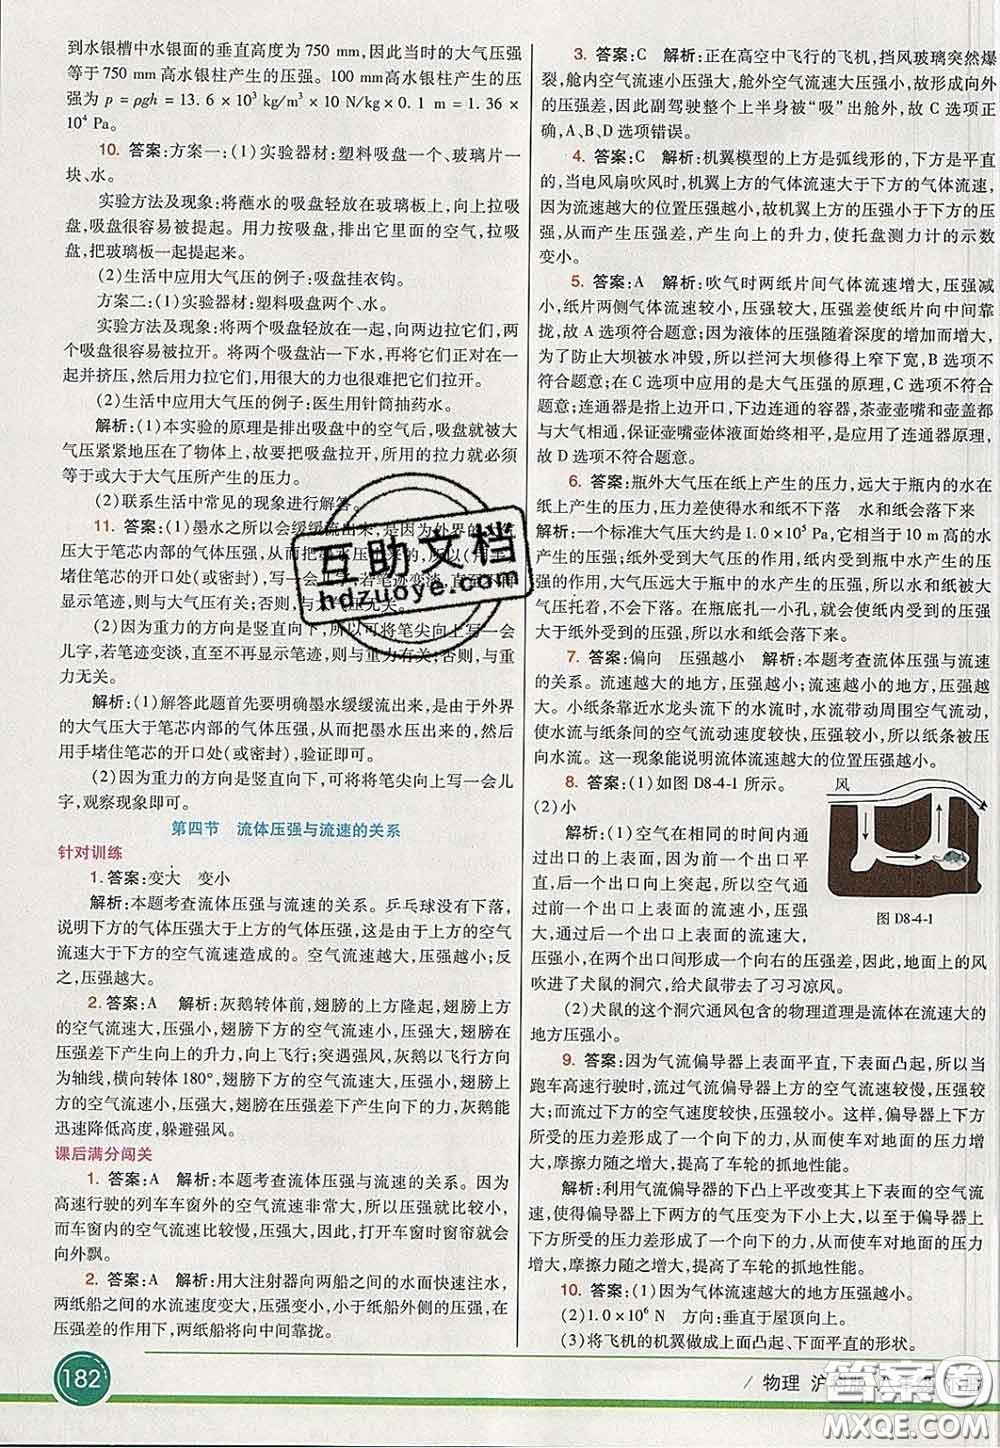 到水银槽中水银面的垂直高度为 750 mm,因此当时的大气压强
等于 750 mm 高水银柱产生的压强。100 mm 高水银柱产生的压
强为 p = ρgh = 13. 6 × 10³ kg/m³ × 10 N/kg × 0. 1 m = 1. 36 ×
10⁴ Pa。
10. 答案:方案一:(1)实验器材:塑料吸盘一个、玻璃片一
块、水。
实验方法及现象:将蘸水的吸盘轻放在玻璃板上,向上拉吸
盘,吸盘很容易被提起。用力按吸盘,排出它里面的空气,拉吸
盘,把玻璃板一起提起来。
(2)生活中应用大气压的例子:吸盘挂衣钩。
方案二:(1)实验器材:塑料吸盘两个、水。
实验方法及现象:将两个吸盘轻放在一起,向两边拉它们,两
个吸盘很容易被拉开。将两个吸盘沾一下水,把两个吸盘放在一
起并挤压,然后用力拉它们,用很大的力也很难将它们拉开。
(2)生活中应用大气压的例子:医生用针筒抽药水。
解析:(1)本实验的原理是排出吸盘中的空气后,吸盘就被大
气压紧紧地压在了物体上,故要把吸盘拉开,所用的拉力就必须
等于或大于大气压所产生的压力。
(2)联系生活中常见的现象进行解答。
11. 答案:(1)墨水之所以会缓缓流出来,是因为外界的大气
压大于笔芯内部的气体压强,从而把墨水压出来的,所以(用手)
堵住笔芯的开口处(或密封),写一会儿字,若笔迹变淡,直至不能
显示笔迹,则与大气压有关;否则,与大气压无关。
(2)因为重力的方向是竖直向下,所以可将笔尖向上写一会
儿字,若笔迹变淡,直至不能显示笔迹,则与重力有关;否则,与重
力无关。
解析:(1)解答此题首先要明确墨水缓缓流出来,是由于外界
的大气压大于笔芯内部的气体压强,从而把墨水压出来的,然后
用手堵住笔芯的开口处(或密封),验证即可。
(2)因为重力的方向是竖直向下,可将将笔尖向上写一会儿
字,观察现象即可。
第四节 流体压强与流速的关系
针对训练
1. 答案:变大 变小
解析:本题考查流体压强与流速的关系。乒乓球没有下落,
说明下方的气体压强大于上方的气体压强,这是由于上方的空气
流速大于下方的空气流速造成的。空气流速越大,压强越小;反
之,压强越大。
2. 答案:A 解析:灰鹅转体前,翅膀的上方隆起,翅膀上方
的空气流速大,压强小,翅膀下方的空气流速小,压强大,翅膀在
压强差下产生向上的升力,向上飞行;突遇强风,灰鹅以飞行方向
为轴线,横向转体 180°,翅膀下方的空气流速大,压强小,翅膀上
方的空气流速小,压强大,翅膀在压强差下产生向下的力,灰鹅能
迅速降低高度,躲避强风。
课后满分闯关
1. 答案:A 解析:本题考查流体压强与流速的关系。因为
高速行驶的列车车窗外的空气流速非常大,所以压强就比较小,
而车窗内的空气流速比较慢,压强大,因此,打开车窗时窗帘就会
向外飘。
2. 答案:A 解析:用大注射器向两船之间的水面快速注水,
两纸船之间的水流速度变大,压强变小,小于纸船外侧的压强,在
压强差的作用下,两纸船将向中间靠拢。
3. 答案:C 解析:正在高空中飞行的飞机,挡风玻璃突然爆
裂,舱内空气流速小压强大,舱外空气流速大压强小,故形成向外
的压强差,因此副驾驶整个上半身被“吸”出舱外,故 C 选项正
确,A、B、D 选项错误。
4. 答案:C 解析:机翼模型的上方是弧线形的,下方是平直
的,当电风扇吹风时,机翼上方的气体流速大于下方的气体流速,
因为流速越大的位置压强越小,故机翼上方的压强小于下方的压
强,从而产生压强差,产生向上的升力,使托盘测力计的示数
变小。
5. 答案:A 解析:吹气时两纸片间气体流速增大,压强减
小,纸片两侧气体流速较小,压强较大,压强差使纸片向中间靠
拢,故 A 选项符合题意;因为液体的压强随着深度的增加而增大,
为了防止大坝被水冲毁,所以拦河大坝修得上窄下宽,B 选项不
符合题意;在 C 选项中应用的是大气压强的原理,C 选项不符合
题意;连通器是指上端开口,下边连通的容器,茶壶壶嘴和壶盖都
与大气相通,保证壶嘴壶体液面始终相平,是应用了连通器原理,
故 D 选项不符合题意。
6. 答案:瓶外大气压在纸上产生的压力,远大于瓶内的水在
纸上产生的压力,使得水和纸不下落 水和纸会落下来
解析:一个标准大气压大约是 1. 0 × 10⁵ Pa,它相当于 10 m 高的水
产生的压强;纸外受到大气压的作用,纸内受到瓶中水产生的压
强的作用,大气压远大于瓶中的水产生的压强,所以水和纸被大
气压托着,不会下落。在瓶底戳一小孔,就会使纸内受到的压强
大于纸外受到的压强,所以水和纸会落下来。
7. 答案:偏向 压强越小 解析:本题考查流体压强与流速
的关系。流速越大的地方,压强越小,流速越小的地方,压强越
大。小纸条靠近水龙头流下的水流时,水流带动周围空气流动,
使水流与纸条间的空气流动速度较快,压强较小,所以纸条被压
向水流。这一现象能说明流体流速越大的位置压强越小。
8. 答案:(1)如图 D8-4-1 所示。
(2)小
解析:(1)空气在相同的时间内通
过出口的上表面,因为前一个出口平
直,后一个出口向上突起,所以空气通过
前一个出口上表面的流速小,压强大,
通过后一个出口上表面的流速大,
压强小,在两个出口间形成一个向右的压强差,因此,地面上的风
吹进了犬鼠的洞穴,给犬鼠带去了习习凉风。
(2)犬鼠的这个洞穴通风包含的物理道理是流体在流速大的
地方压强小。
风
图 D8-4-1
9. 答案:因为气流偏导器上表面平直,下表面凸起,所以当
跑车高速行驶时,流过气流偏导器上方的空气流速较慢,压强较
大;而流过下方的空气速度较快,压强较小。这样,偏导器上下方
所受的压力差形成了一个向下的力,从而使车对地面的压力增
大,摩擦力随之增大,提高了车轮的抓地性能。
解析:利用气流偏导器的下凸上平改变其上下表面的空气流
速,使得偏导器上下两方的气压变为下小上大,以至于偏导器上
下方所受的压力差形成了一个向下的力,从而使车对地面的压力
增大,摩擦力随之增大,提高了车轮的抓地性能。
10. 答案:(1)因为气体流速越大的地方压强越小。
(2)1. 0 × 10⁶ N 方向:垂直于屋顶向上。
(3)将飞机的机翼做成上面凸起、下面平直的形状。
互助文档
hdzuoye.com
182
物理 沪
答案圈
MXQE.COM